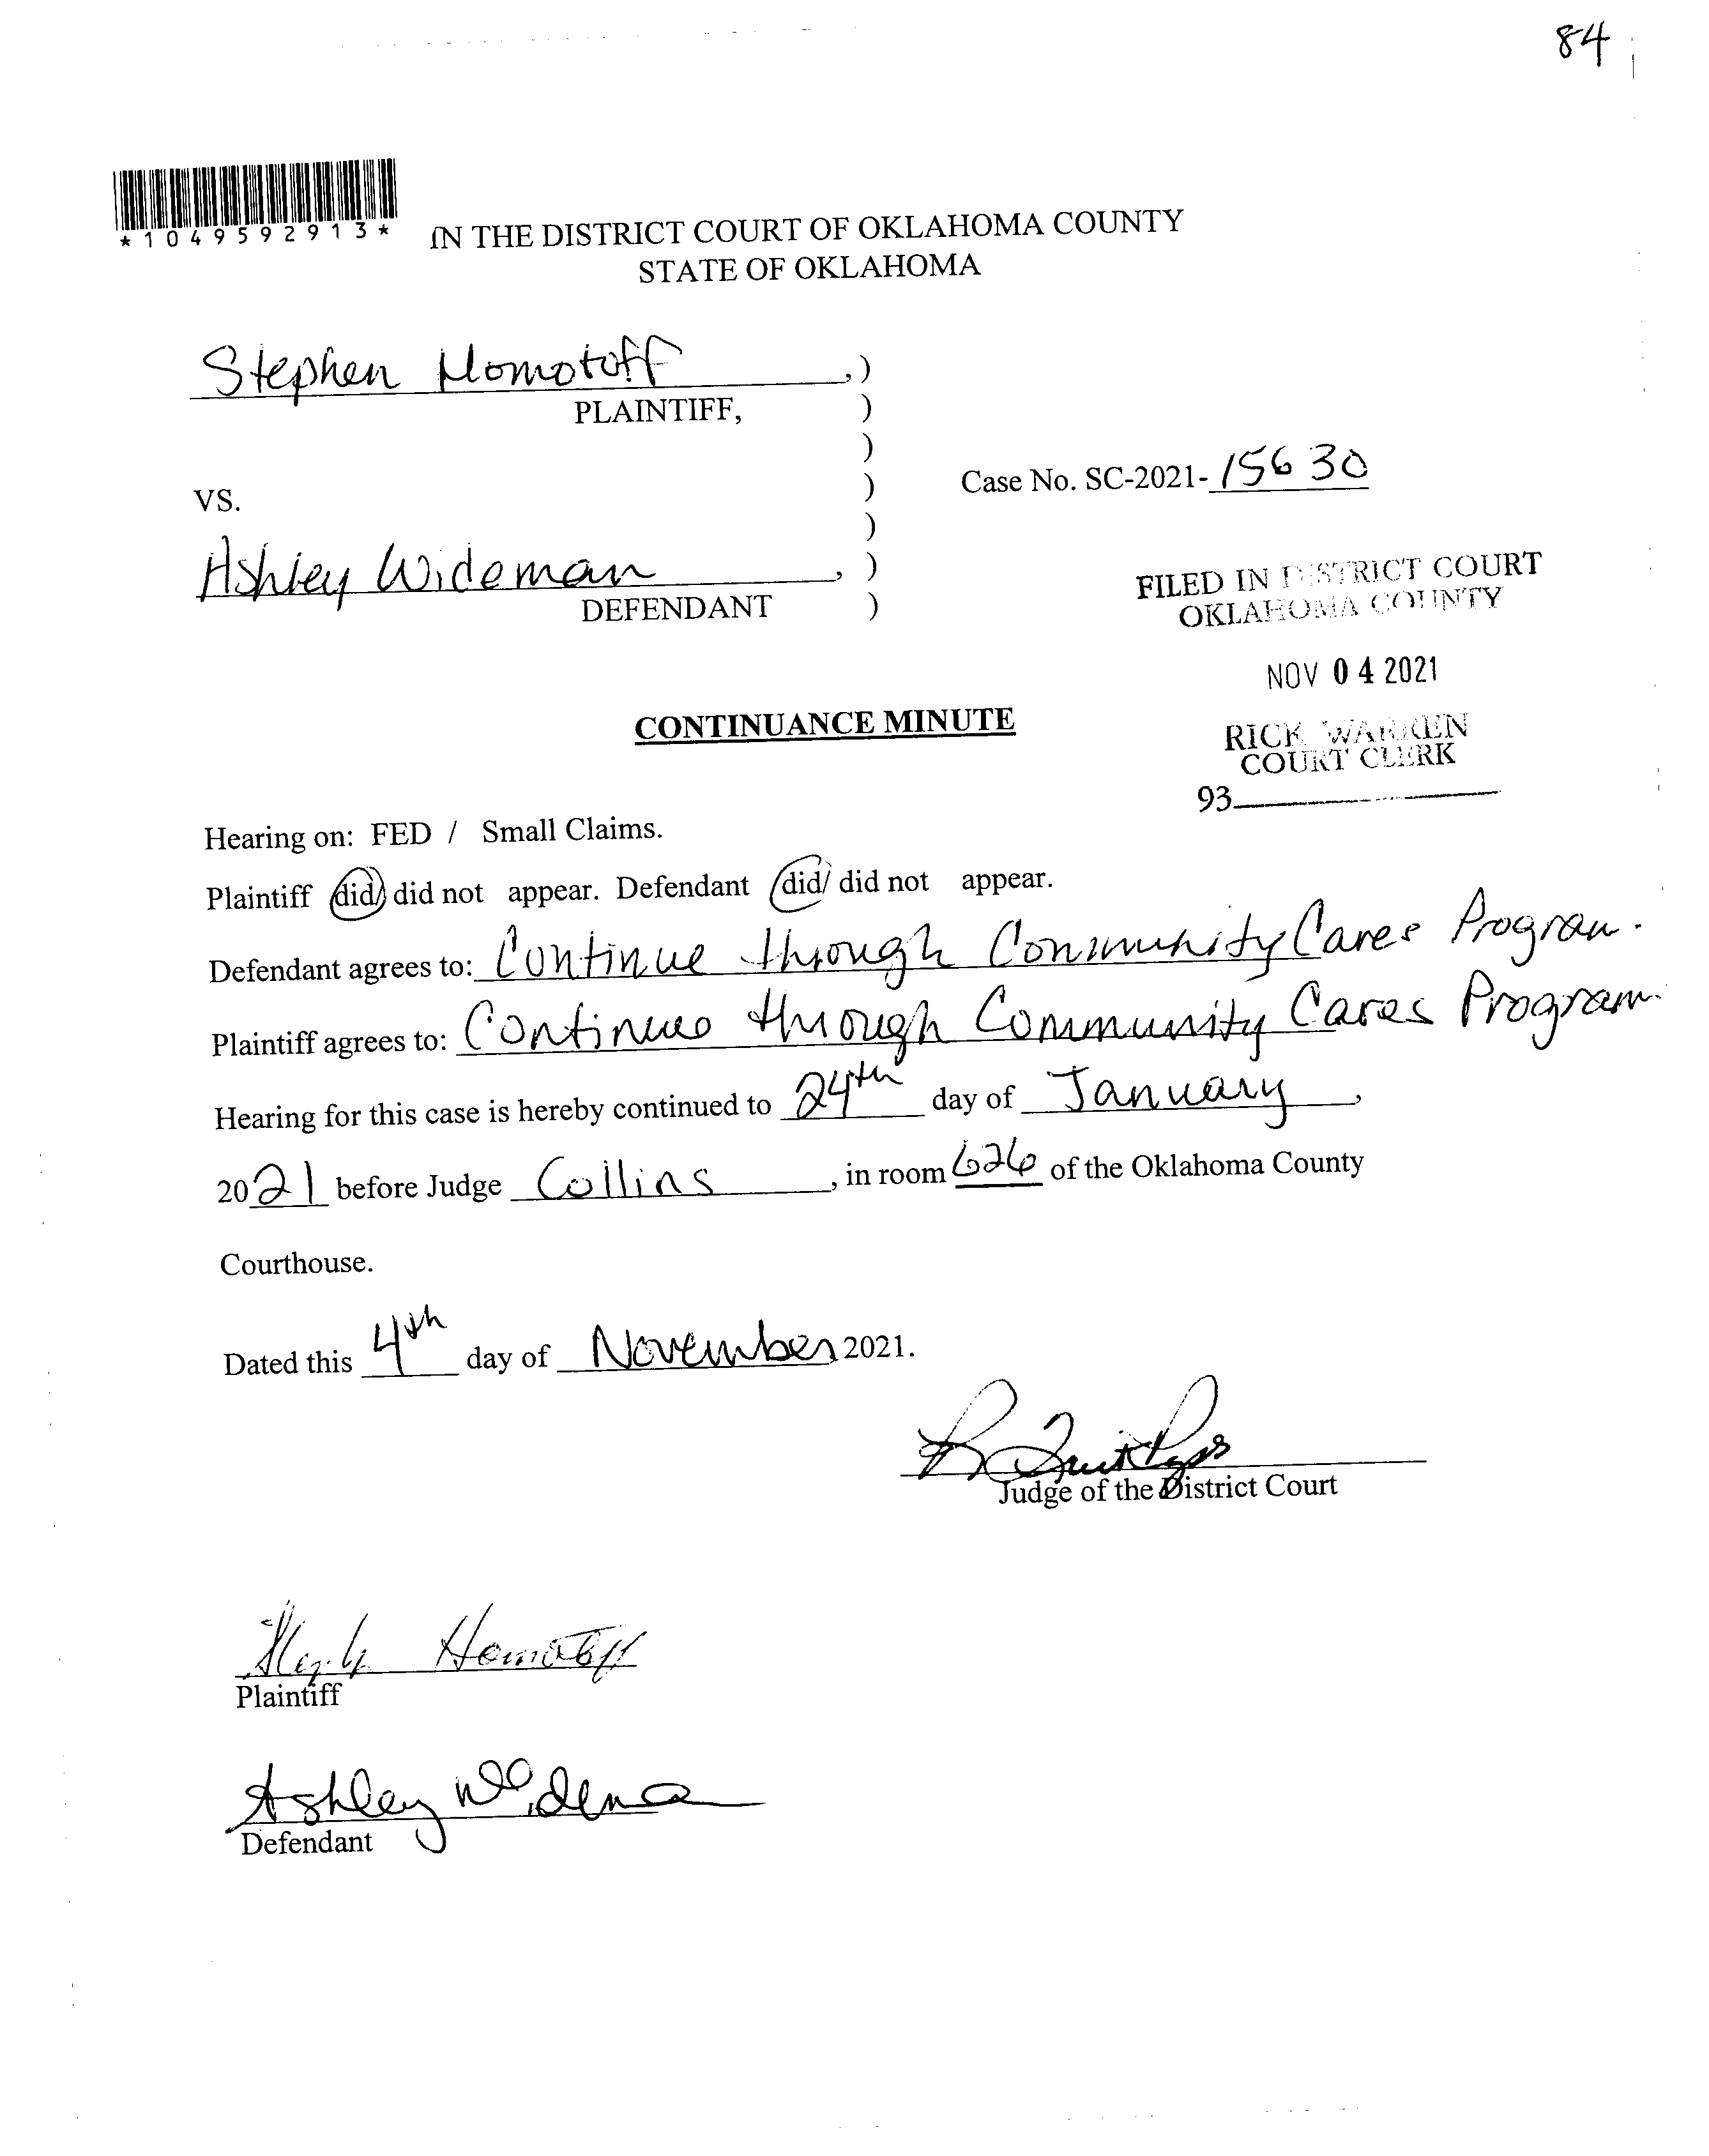 84
*1049592913*
IN THE DISTRICT COURT OF OKLAHOMA COUNTY
STATE OF OKLAHOMA
Stephen Homotoff ,)
PLAINTIFF, )
)
VS. )
Case No. SC-2021-15630
)
Ashley Wideman , )
DEFENDANT )
FILED IN DISTRICT COURT
OKLAHOMA COUNTY
NOV 04 2021
CONTINUANCE MINUTE
RICK WARREN
COURT CLERK
93
Hearing on: FED / Small Claims.
Plaintiff did/ did not appear. Defendant did/ did not appear.
Defendant agrees to: Continue through Community Cares Program.
Plaintiff agrees to: Continue through Community Cares Program.
Hearing for this case is hereby continued to 24th day of January,
2021 before Judge Collins, in room 626 of the Oklahoma County
Courthouse.
Dated this 4th day of November 2021.
Judge of the District Court
Homotoff
Plaintiff
Ashley Wideman
Defendant